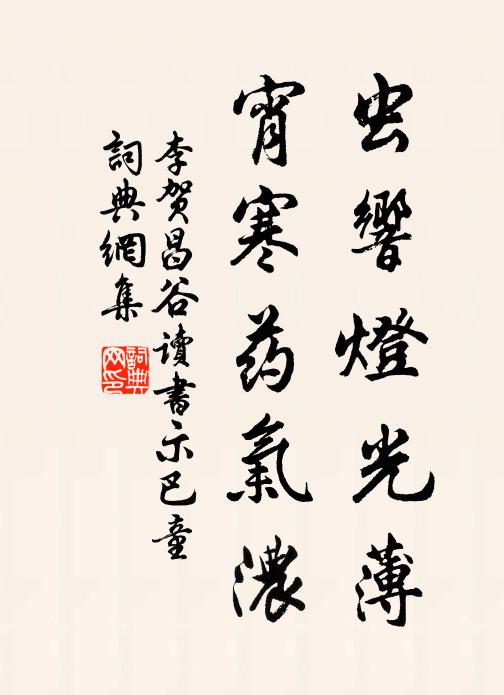 虫響燈光薄
宵寒药氣濃
李賀昌谷讀書示巴童
詞典網集
詞典
网印